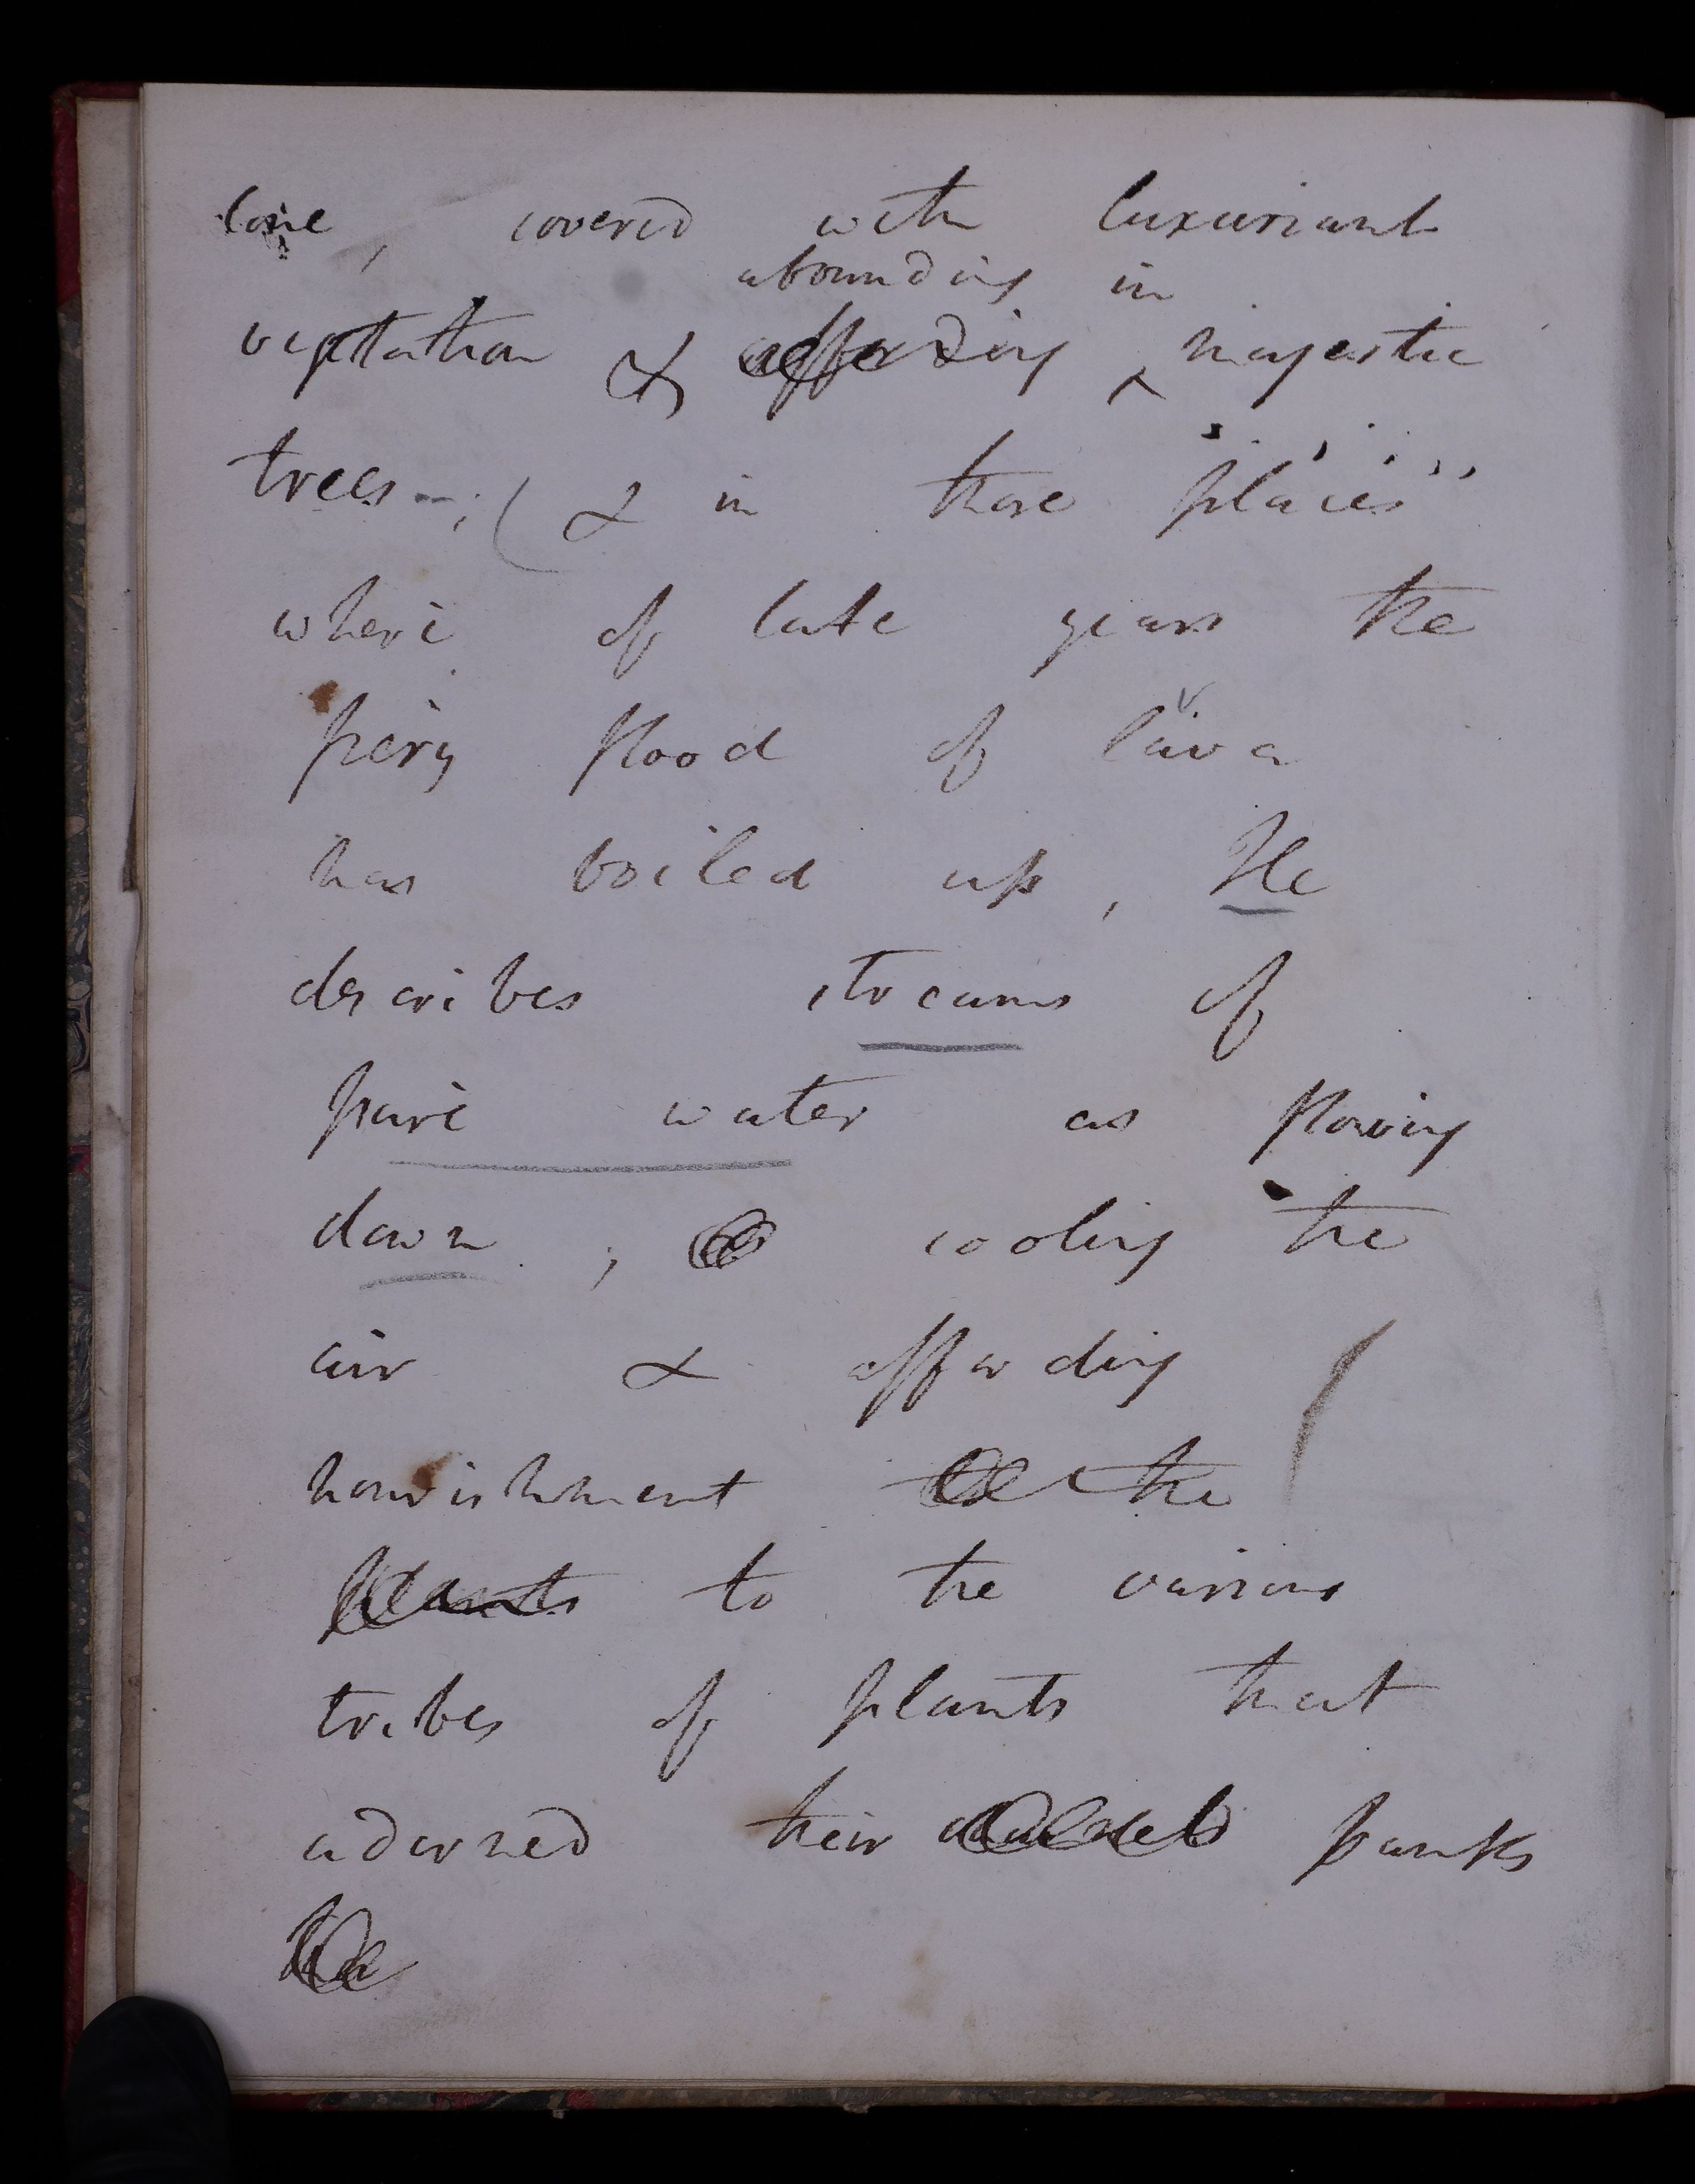 cone, covered with luxuriant
abounding in
vegetation & affording ^ majestic
trees -; ( & in those places
where of late years the
fiery flood of lava
has boiled up, He
describes streams of
pure water as flowing
down ; cooling the
air & affording
nourishment the
plants to the various
tribes of plants that
adorned their banks